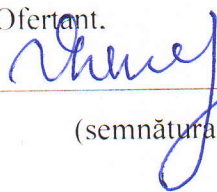 Ofertant,
(semnătura